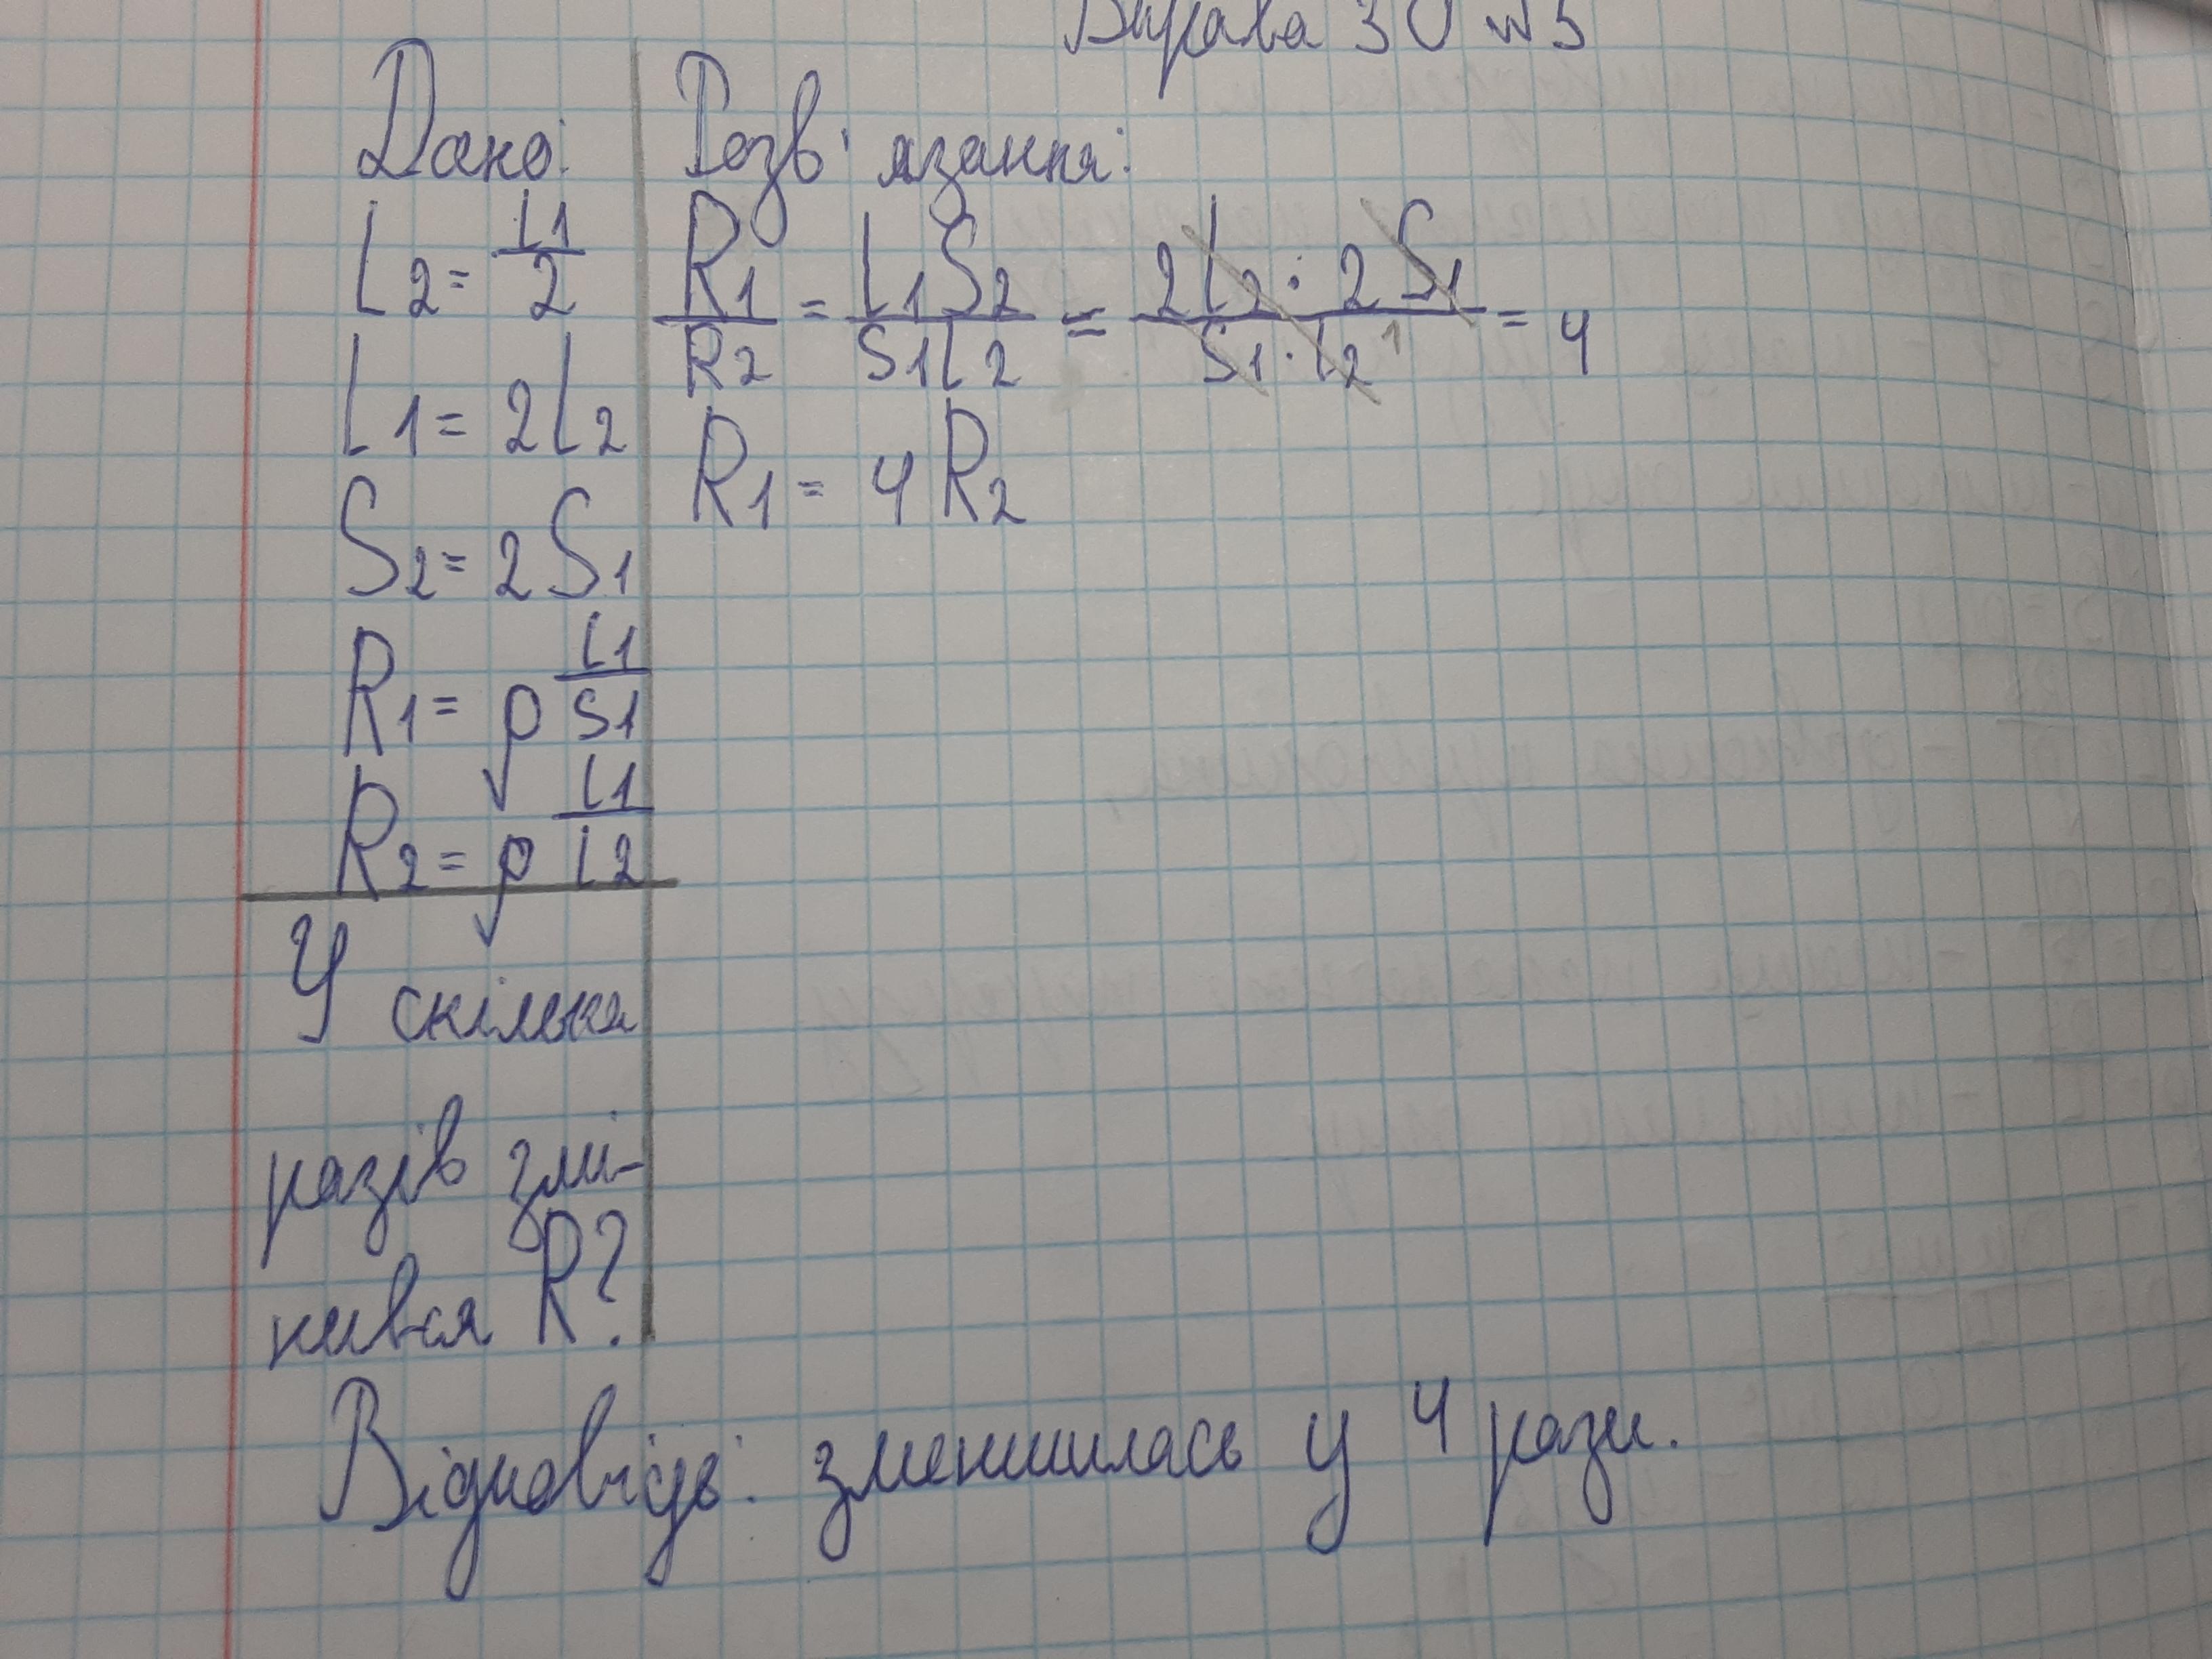 Вправа 30 №3
Дано:
l2 = l1/2
l1 = 2l2
S2 = 2S1
R1 = ρ l1/S1
R2 = ρ l1/l2
У скільки
разів змі-
нився R?
Розв'язання:
R1/R2 = l1S2/S1l2 = 2l2 · 2S1/S1 · l2 1 = 4
R1 = 4R2
Відповідь: зменшилась у 4 рази.